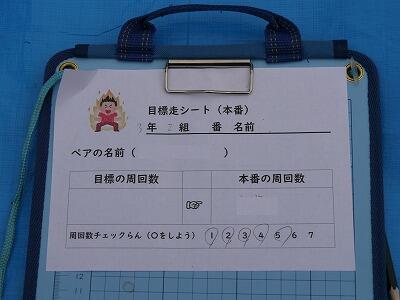 目標走シート（本番）
3年 2組 番 名前
ペアの名前（ ）
目標の周回数 ☞ 本番の周回数
周回数チェックらん（○をしよう） 1 2 3 4 5 6 7
12
11